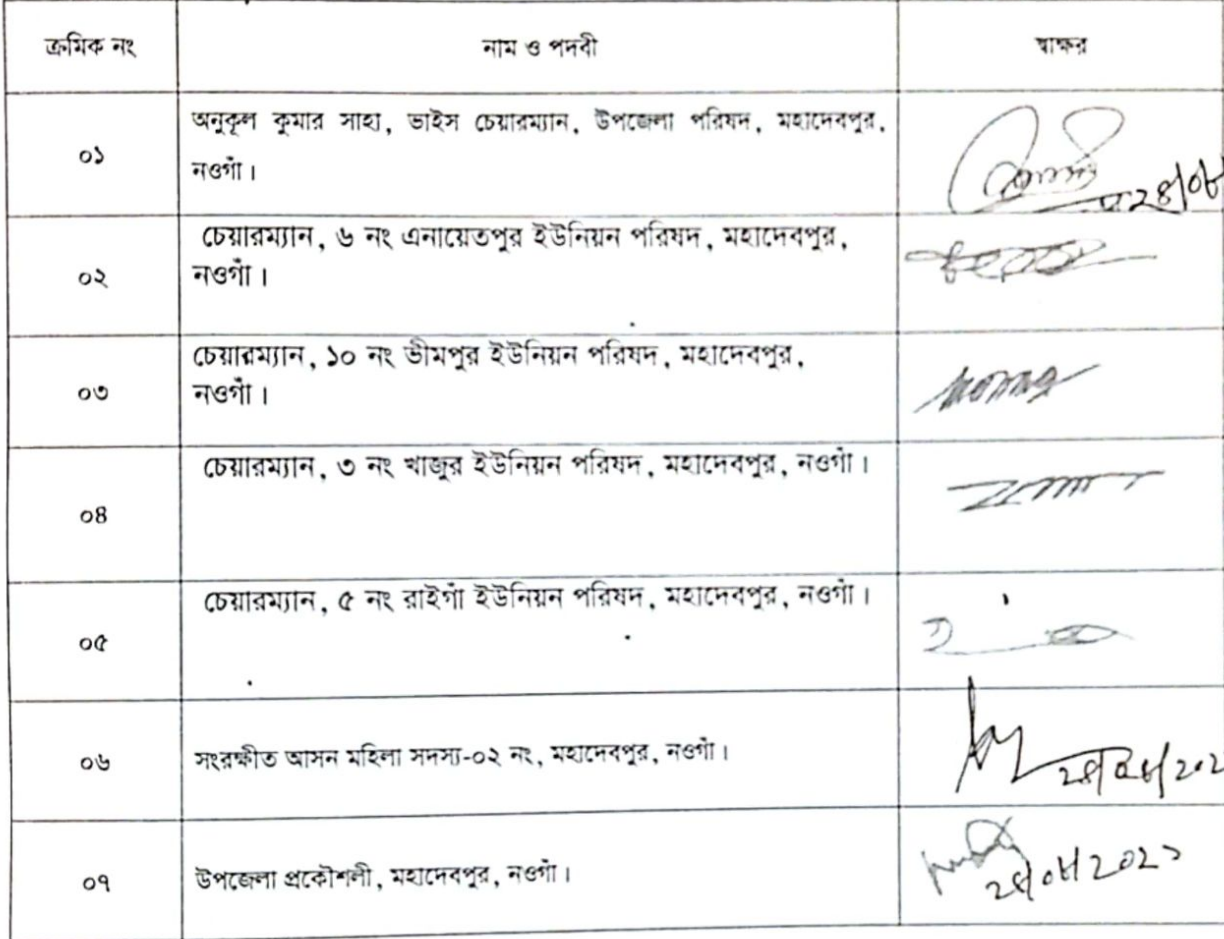 ক্রমিক নং নাম ও পদবী স্বাক্ষর
০১ অনুকূল কুমার সাহা, ভাইস চেয়ারম্যান, উপজেলা পরিষদ, মহাদেবপুর,
নওগাঁ।
০২ চেয়ারম্যান, ৬ নং এনায়েতপুর ইউনিয়ন পরিষদ, মহাদেবপুর,
নওগাঁ।
০৩ চেয়ারম্যান, ১০ নং ভীমপুর ইউনিয়ন পরিষদ, মহাদেবপুর,
নওগাঁ।
০৪ চেয়ারম্যান, ৩ নং খাজুর ইউনিয়ন পরিষদ, মহাদেবপুর, নওগাঁ।
০৫ চেয়ারম্যান, ৫ নং রাইগাঁ ইউনিয়ন পরিষদ, মহাদেবপুর, নওগাঁ।
০৬ সংরক্ষীত আসন মহিলা সদস্য-০২ নং, মহাদেবপুর, নওগাঁ।
০৭ উপজেলা প্রকৌশলী, মহাদেবপুর, নওগাঁ।